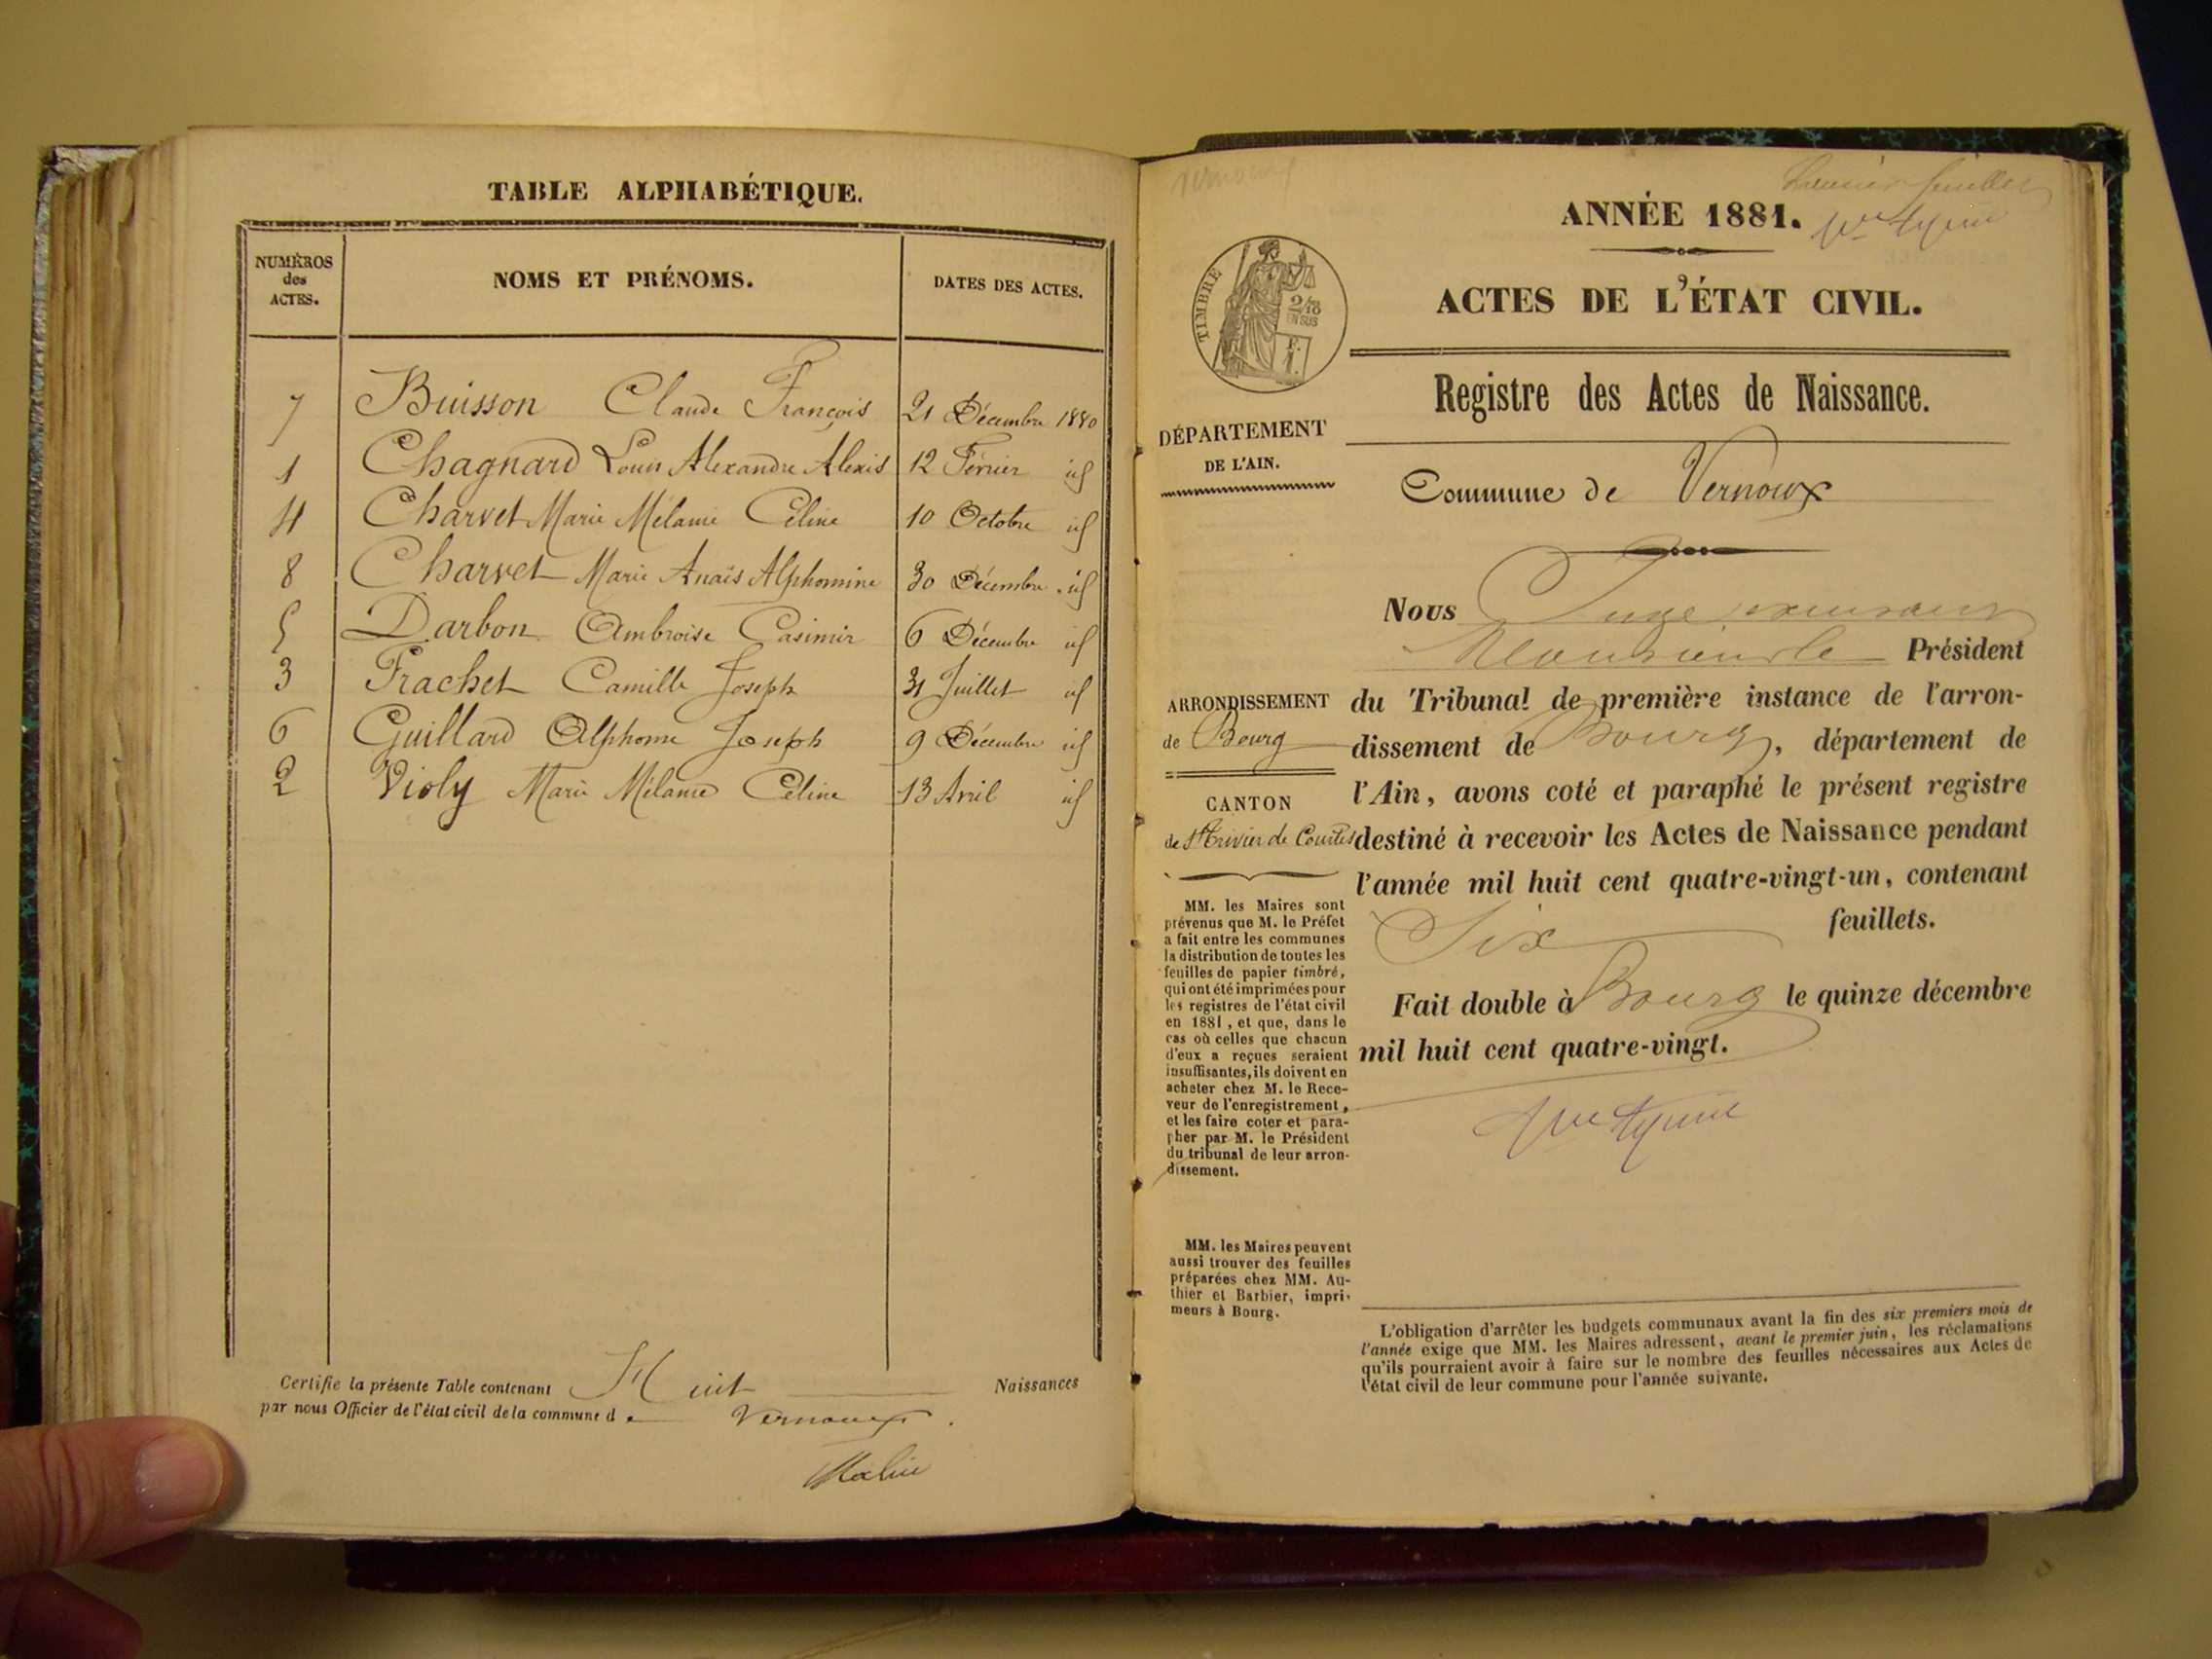 TABLE ALPHABÉTIQUE.
NUMÉROS des ACTES. NOMS ET PRÉNOMS. DATES DES ACTES.
7 Buisson Claude François 21 Décembre 1880
1 Chagnard Louis Alexandre Alexis 12 Février id
4 Charvet Marie Mélanie Céline 10 Octobre id
8 Charvet Marie Anaïs Alphonsine 30 Décembre id
5 Darbon Ambroise Casimir 6 Décembre id
3 Frachet Camille Joseph 31 Juillet id
6 Guillard Alphonse Joseph 9 Décembre id
2 Violy Marie Mélanie Céline 13 Avril id
Certifie la présente Table contenant Huit Naissances
par nous Officier de l'état civil de la commune de Vernoux.
Vernoux
Premier feuillet
ANNÉE 1881.
ACTES DE L'ÉTAT CIVIL.
TIMBRE
2/10
EN SUS
Registre des Actes de Naissance.
DÉPARTEMENT
DE L'AIN.
Commune de Vernoux
Nous Juge
Président
ARRONDISSEMENT
de Bourg
CANTON
de St Trivier de Courtes
du Tribunal de première instance de l'arron-
dissement de Bourg, département de
l'Ain, avons coté et paraphé le présent registre
destiné à recevoir les Actes de Naissance pendant
l'année mil huit cent quatre-vingt-un, contenant
Six feuillets.
Fait double à Bourg le quinze décembre
mil huit cent quatre-vingt.
MM. les Maires sont
prévenus que M. le Préfet
a fait entre les communes
la distribution de toutes les
feuilles de papier timbré,
qui ont été imprimées pour
les registres de l'état civil
en 1881, et que, dans le
cas où celles que chacun
d'eux a reçues seraient
insuffisantes, ils doivent en
acheter chez M. le Rece-
veur de l'enregistrement,
et les faire coter et para-
pher par M. le Président
du tribunal de leur arron-
dissement.
MM. les Maires peuvent
aussi trouver des feuilles
préparées chez MM. Au-
thier et Barbier, impri-
meurs à Bourg.
L'obligation d'arrêter les budgets communaux avant la fin des six premiers mois de
l'année exige que MM. les Maires adressent, avant le premier juin, les réclamations
qu'ils pourraient avoir à faire sur le nombre des feuilles nécessaires aux Actes de
l'état civil de leur commune pour l'année suivante.